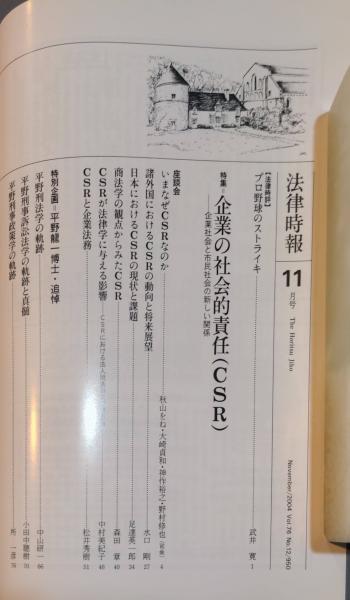 法律時報
11月号
The Horitsu Jiho
November/2004 Vol.76 No.12/950
[法律時評]
プロ野球のストライキ 武井 寛 1
特集=企業の社会的責任(CSR)
企業社会と市民社会の新しい関係
座談会
いまなぜCSRなのか 秋山をね・大崎貞和・神作裕之・野村修也(司会) 4
諸外国におけるCSRの動向と将来展望 水口 剛 27
日本におけるCSRの現状と課題 足達英一郎 34
商法学の観点からみたCSR 森田 章 40
CSRが法律学に与える影響 中村美紀子 46
CSRにおける法人
CSRと企業法務 松井秀樹 51
特別企画=平野龍一博士・追悼
平野刑法学の軌跡 中山研一 66
平野刑事訴訟法学の軌跡と真髄 小田中聰樹 70
平野刑事政策学の軌跡 所 一彦 76